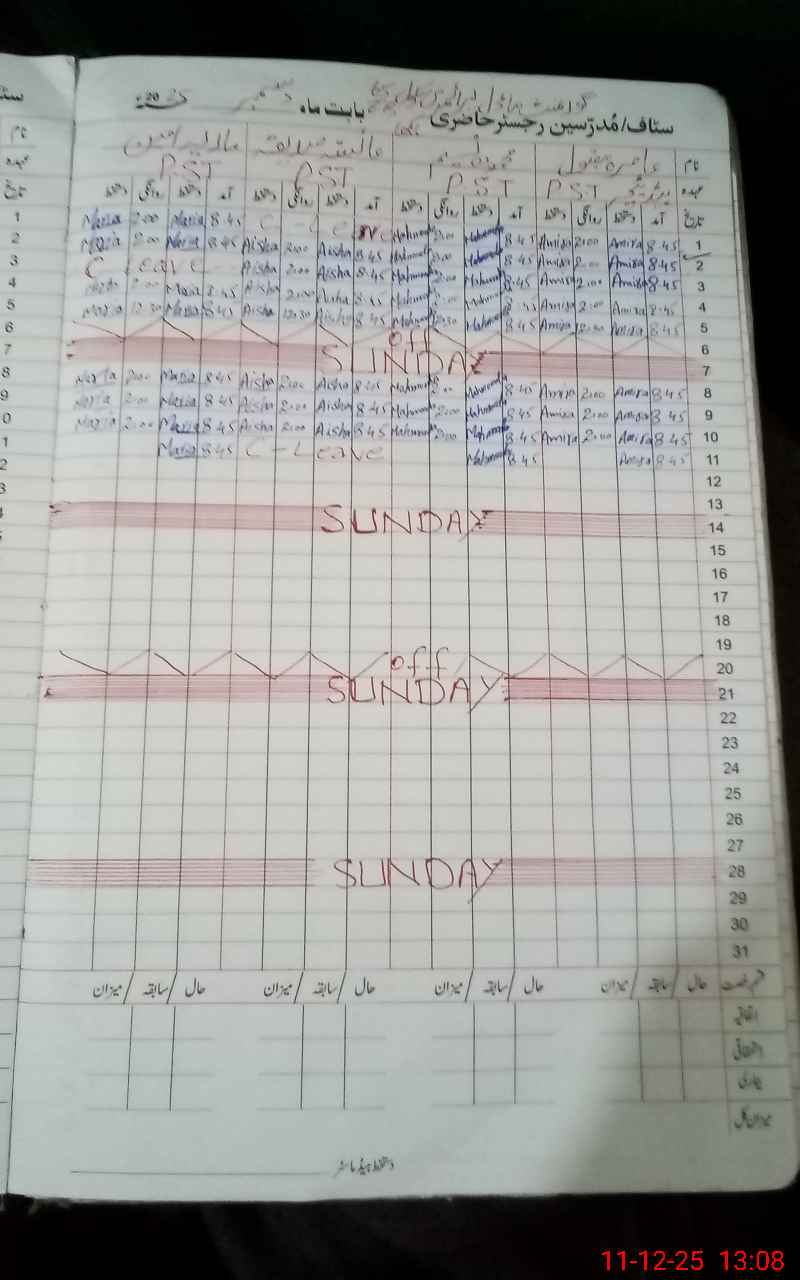 سٹاف/مُدرّسین رجسٹر حاضری بابت ماہ دسمبر 2025ء
نام عامرہ مقبول عائشہ صدیقہ
عہدہ PST P.S.T PST P.ST
تاریخ آمد دستخط روانگی دستخط آمد دستخط روانگی دستخط آمد دستخط روانگی دستخط آمد دستخط روانگی دستخط
1 8.45 Amira 2:00 Amira 8.45 Mahmooda 2:00 Mahmooda C-Leave 8.45 Maria 2:00 Maria
2 8.45 Amira 2:00 Amira 8.45 Mahmooda 2:00 Mahmooda 8.45 Aisha 2:00 Aisha 8.45 Maria 2:00 Maria
3 8.45 Amira 2:00 Amira 8.45 Mahmooda 2:00 Mahmooda 8.45 Aisha 2:00 Aisha C Leave
4 8.45 Amira 2:00 Amira 8.45 Mahmooda 2:00 Mahmooda 8.45 Aisha 2:00 Aisha 8.45 Maria 2:00 Maria
5 8.45 Amira 12:30 Amira 8.45 Mahmooda 12:30 Mahmooda 8.45 Aisha 12:30 Aisha 8.45 Maria 12:30 Maria
6 off
7 SUNDAY
8 8.45 Amira 2:00 Amira 8.45 Mahmooda 2:00 Mahmooda 8.45 Aisha 2:00 Aisha 8.45 Maria 2:00 Maria
9 8.45 Amira 2:00 Amira 8.45 Mahmooda 2:00 Mahmooda 8.45 Aisha 2:00 Aisha 8.45 Maria 2:00 Maria
10 8.45 Amira 2:00 Amira 8.45 Mahmooda 2:00 Mahmooda 8.45 Aisha 2:00 Aisha 8.45 Maria 2:00 Maria
11 8.45 Amira 8.45 Mahmooda C-Leave 8.45 Maria
12
13
14 SUNDAY
15
16
17
18
19
20 off
21 SUNDAY
22
23
24
25
26
27
28 SUNDAY
29
30
31
قسم رخصت حال سابقہ / میزان حال سابقہ / میزان حال سابقہ / میزان حال سابقہ / میزان
اتفاقیہ
استحقاقی
بیماری
میزان کل
دستخط ہیڈ ماسٹر
11-12-25 13:08